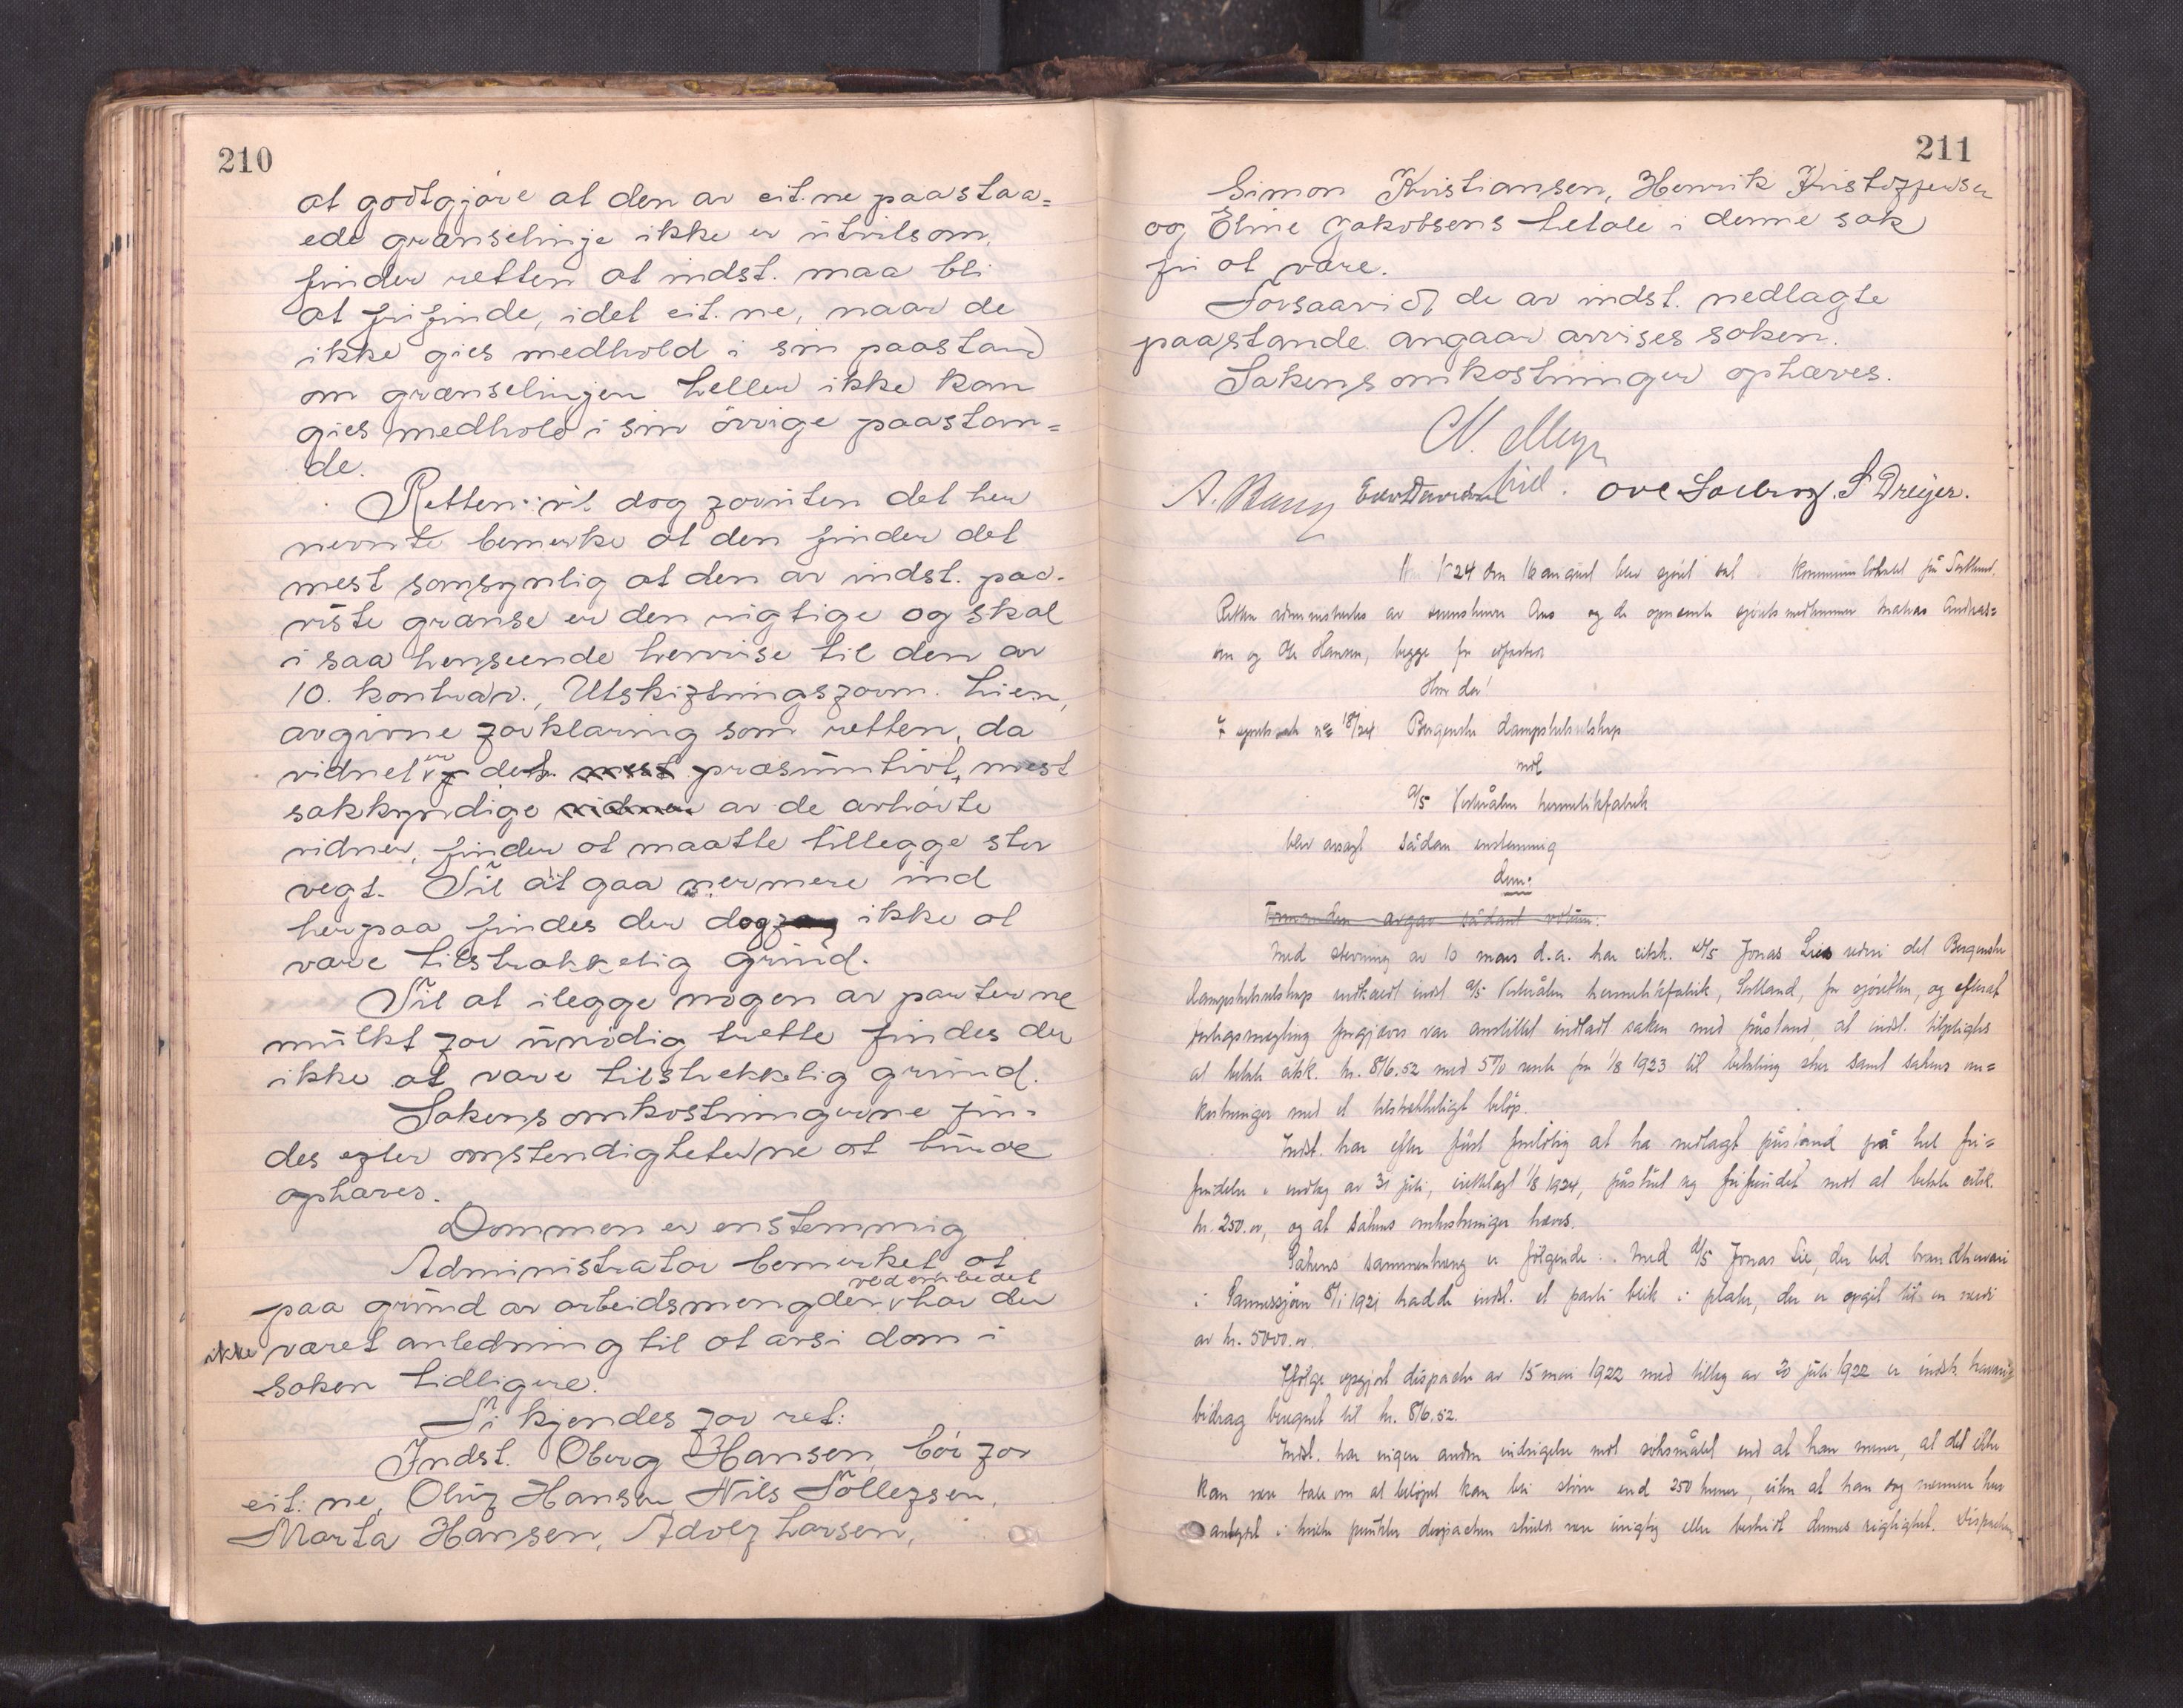 210
at godtgjøre at den av cit.ne paastaa=
ede grænselinje ikke er utvilsom,
finder retten at indst. maa bli
at frifinde, idet cit.ne, naar de
ikke gies medhold i sin paastand
om grænselinjen heller ikke kan
gies medhold i sin øvrige paastan=
de.
Retten vil dog foruten det her
nevnte bemerke at den finder det
mest sansynlig at den av indst. paa-
viste grænse er den rigtige og skal
i saa henseende henvise til den av
10. kontrav., Utskiftningsform. Lien,
avgivne forklaring som retten, da
vidnet er det mest præsumtivt, mest
sakkyndige vidner av de avhørte
vidner, finder at maatte tillegge stor
vegt. Til at gaa nermere ind
herpaa findes der dog ikke at
være tilstrækkelig grund.
Til at ilegge nogen av parterne
mulkt for unødig trette findes der
ikke at være tilstrekkelig grund.
Sakens omkostningerne fin-
des efter omstendigheterne at burde
ophæves.
Dommen er enstemmig
Administrator bemerket at
paa grund av arbeidsmengden ved embedet har der
ikke været anledning til at avsi dom i
saken tidligere.
Ti kjendes for ret:
Indst. Oberg Hansen, bør for
cit.ne, Oluf Hansen Nils Tollefsen,
Marta Hansen, Adolf Larsen,
211
Simon Kristiansen, Henrik Kristoffersen
og Eline Jakobsens tiltale i denne sak
fri at være.
Forsaavidt de av indst. nedlagte
paastande angaar avvises saken.
Sakens omkostninger ophæves.
A. Ove Solberg. S Dreyer.
24 den 16 august blev sjöret sat kommunelokalet på
Retten administertes av og de opnevnte sjörets medlemmer Andreas=
sen og Hansen, begge for
Hvor da!
I sjörets sak nr 18/24 Bergenske dampskibsselskap
mot
a/s Vesterålen hermetikfabrik
blev avsagt sådan enstemmig
dom:
Formanden avgav sådant votum:
Med stevning av 10 mars d.a. har citsk. D/S Jonas Lies rederi det Bergenske
dampskibsselskap indkaldt indst a/s Vesterålen hermetikfabrik, Sortland, for sjöretten, og efterat
forliksmegling forgjæves var anstillet indladt saken med påstand, at indst. tilpligtes
at betale citsk. kr. 876.52 med 5% rente fra 1/8 1923 til betaling sker samt sakens om=
kostninger med et tilstrekkeligt belöp.
Indst. har efter först foreldbig at ha nedlagt påstand på hel fri=
findelse i indleg av 31 juli, irettelagt 1/8 1924, påstået sig frifundet mot at betale citsk.
kr. 250.00, og at sakens omkostninger hæves.
Sakens sammenheng er fölgende: Med D/S Jonas Lie, der led brandhavari
i Sannessjöen 8/1 1921 hadde indst. et parti blik i plater, der er opgit til en verdi
av kr. 5000.00.
Ifölge opgjort dispache av 15 mai 1922 med tilleg av 20 juli 1922 er indst. havari
bidrag beregnet til kr. 876.52.
Indst. har ingen anden indsigelse mot söksmålet end at han mener, at det ikke
kan være tale om at belöpet kan bli större end 250 kroner, uten at han dog nermere har
antydet i hvilke punkter dispachen skulde være urigtig eller bestridt dennes rigtighet. Dispachen